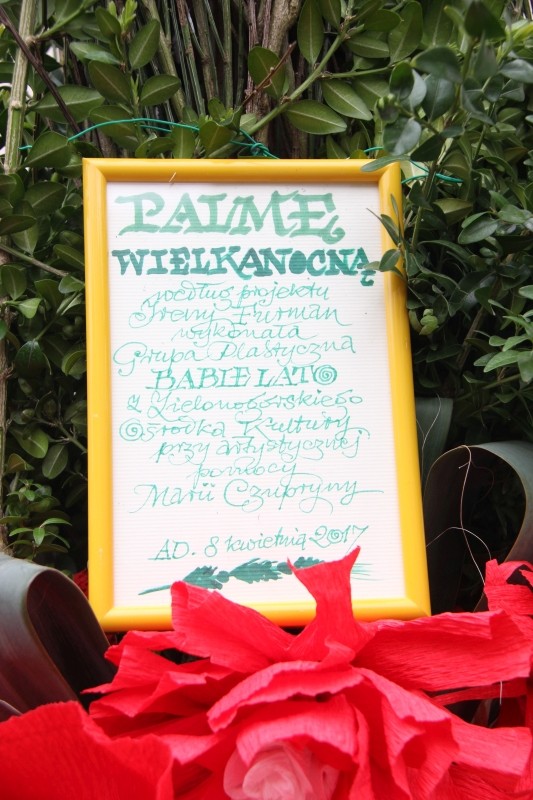 PALMĘ
WIELKANOCNĄ
według projektu
Ireny Furman
wykonała
Grupa Plastyczna
BABIE LATO
z Zielonogórskiego
Ośrodka Kultury
przy artystycznej
pomocy
Marii Czupryny
AD. 8 kwietnia 2017